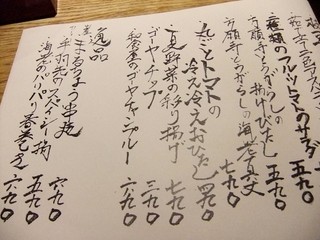 種類のフルーツトマトのサラダ
万願寺とうがらしの揚げびたし 五九〇
万願寺とうがらしの海老真丈 七九〇
・丸ごとトマトの
冷え冷えおひたし 四九〇
・夏野菜の彩り揚げ 七九〇
・ゴーヤチップ 三九〇
・和食屋のゴーヤチャンプルー 六九〇
逸品
・まるちょう串炙 六九〇
・手羽先のスパイシー揚 五九〇
・海老のパリパリ春巻き 六九〇